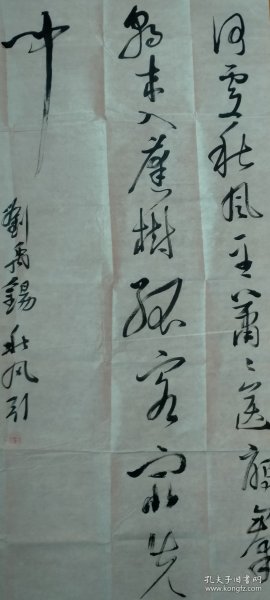 何處秋风至萧〻送雁羣
朝来入庭樹孤客最先
闻
劉禹錫秋风引
孔夫子旧书网
www.kongfz.com